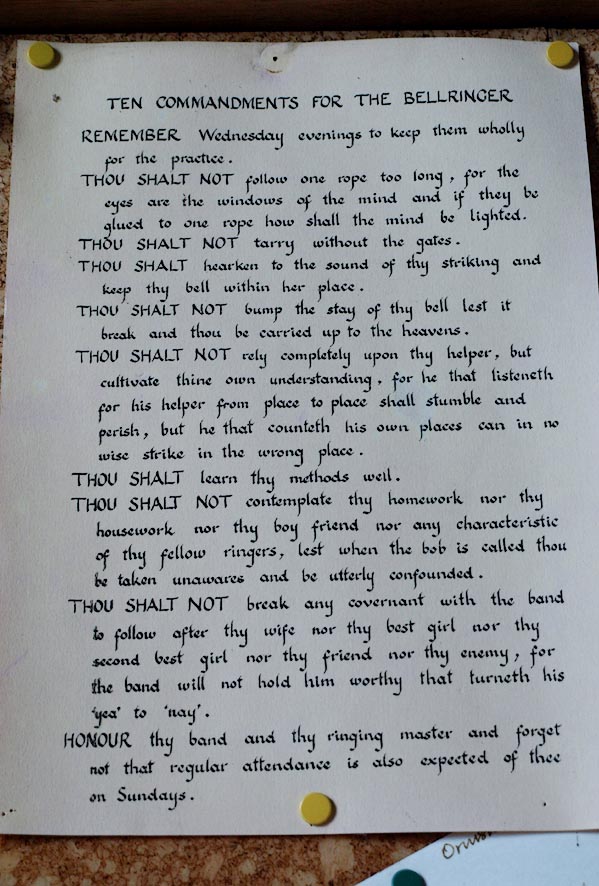 TEN COMMANDMENTS FOR THE BELLRINGER
REMEMBER Wednesday evenings to keep them wholly
for the practice.
THOU SHALT NOT follow one rope too long, for the
eyes are the windows of the mind and if they be
glued to one rope how shall the mind be lighted.
THOU SHALT NOT tarry without the gates.
THOU SHALT hearken to the sound of thy striking and
keep thy bell within her place.
THOU SHALT NOT bump the stay of thy bell lest it
break and thou be carried up to the heavens.
THOU SHALT NOT rely completely upon thy helper, but
cultivate thine own understanding, for he that listeneth
for his helper from place to place shall stumble and
perish, but he that counteth his own places can in no
wise strike in the wrong place.
THOU SHALT learn thy methods well.
THOU SHALT NOT contemplate thy homework nor thy
housework nor thy boy friend nor any characteristic
of thy fellow ringers, lest when the bob is called thou
be taken unawares and be utterly confounded.
THOU SHALT NOT break any covernant with the band
to follow after thy wife nor thy best girl nor thy
second best girl nor thy friend nor thy enemy, for
the band will not hold him worthy that turneth his
'yea' to 'nay'.
HONOUR thy band and thy ringing master and forget
not that regular attendance is also expected of thee
on Sundays.